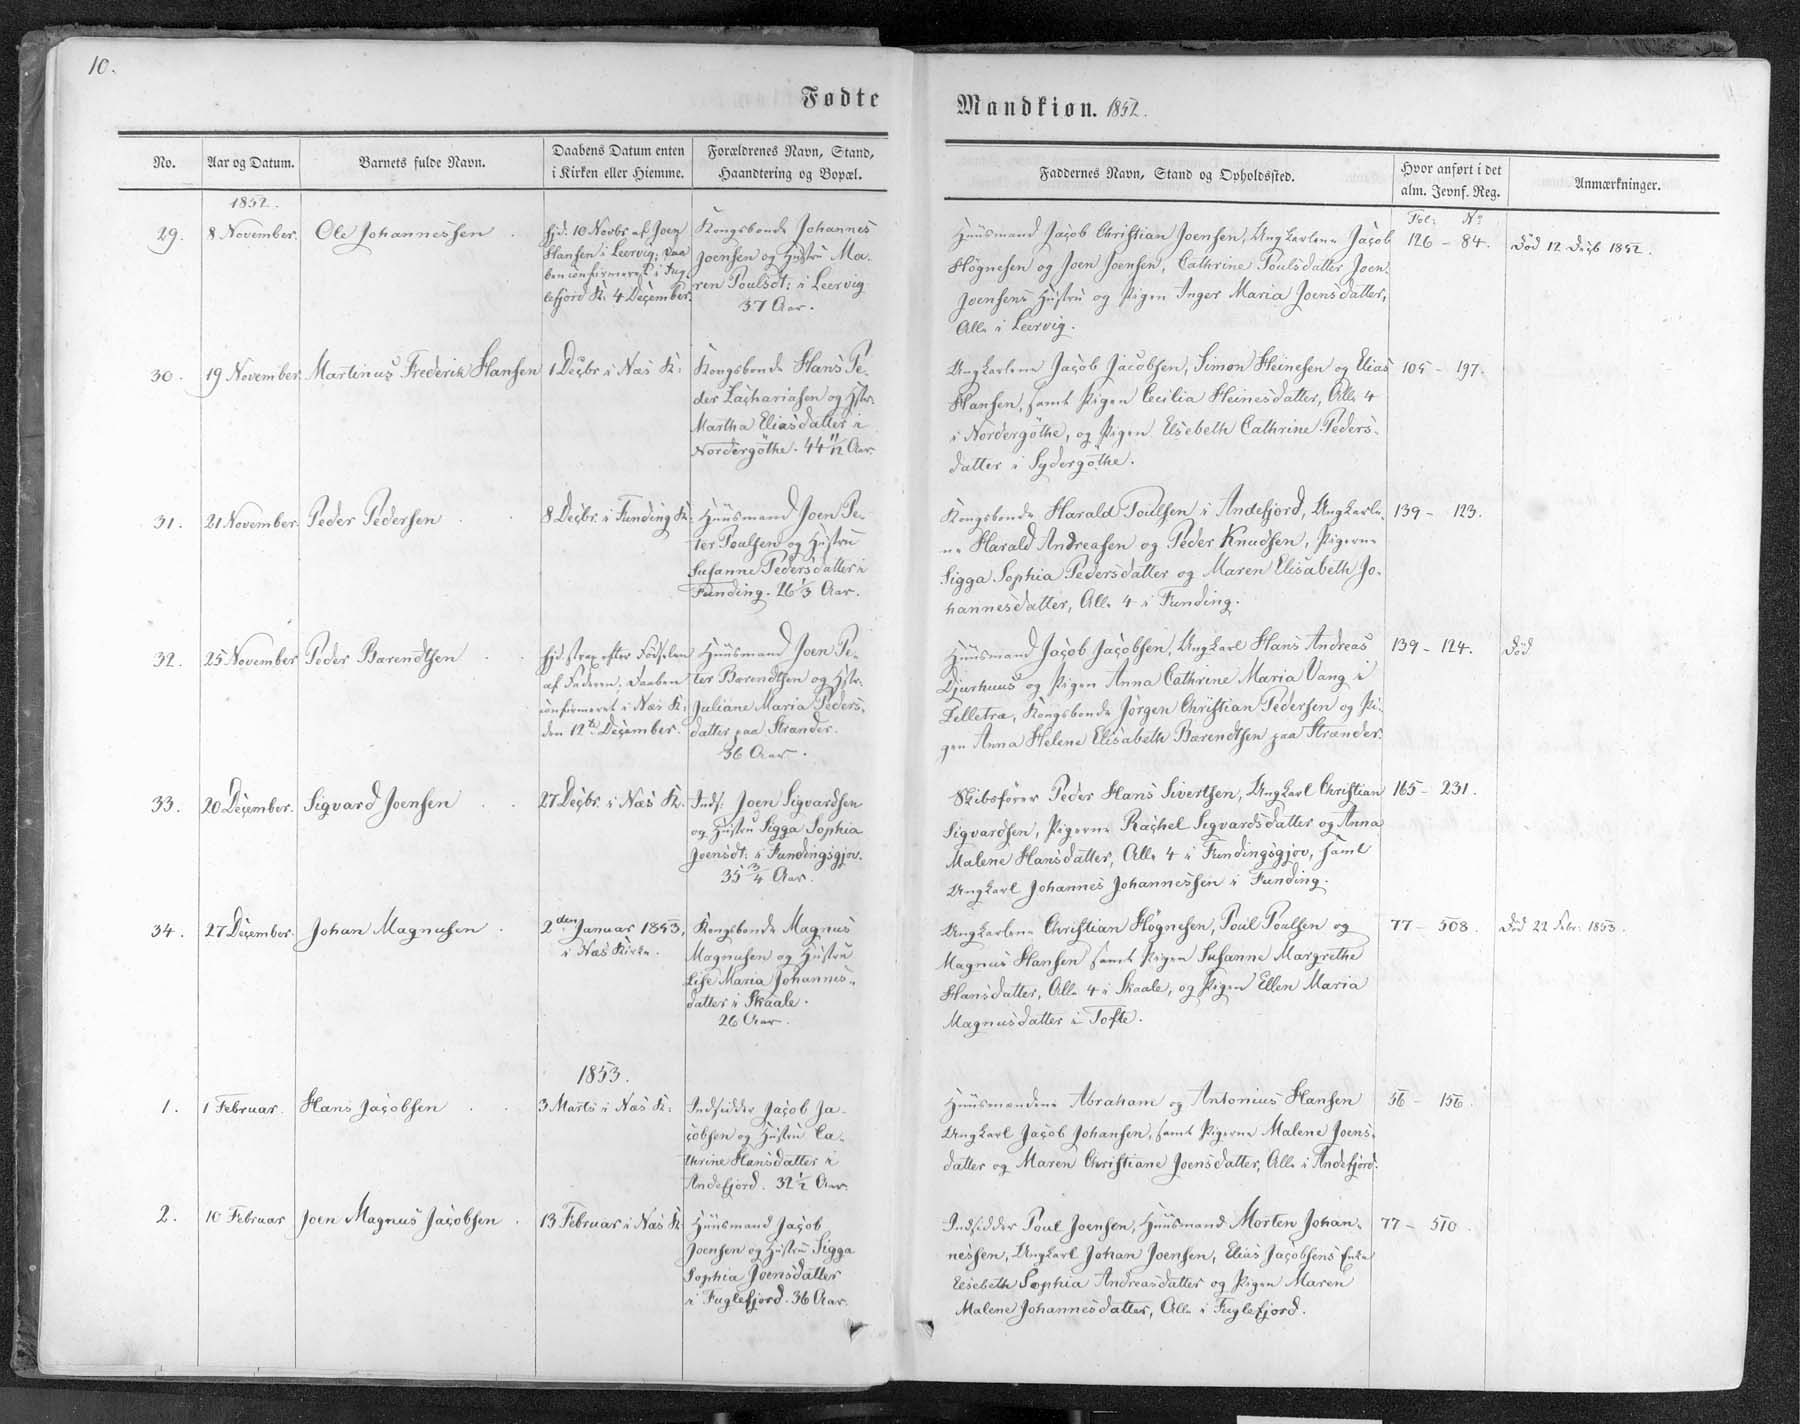 10.
Fødte
No.
Aar og Datum.
Barnets fulde Navn.
Daabens Datum enten
i Kirken eller Hiemme.
Forældrenes Navn, Stand,
Haandtering og Bopæl.
1852.
29.
8 November.
Ole Johannessen
Hjd. 10 Novbr af Joen
Hansen i Leervig; Daa
ben confirmeret i Fug-
lefjord K: 4 December.
Kongsbonde Johannes
Joensen og Hustru Ma-
ren Poulsdt: i Leervig
37 Aar.
30.
19 November.
Martinus Frederik Hansen
1 Decbr i Næs K:
Kongsbonde Hans Pe-
der Zachariasen og Hstr.
Martha Eliasdatter i
Nordergøthe. 44 11/12 Aar.
31.
21 November.
Peder Pedersen
8 Decbr. i Funding K:
Huusmand Joen Pe-
ter Poulsen og Hustru
Susanne Pedersdatter i
Funding. 26 1/3 Aar.
32.
25 November
Peder Barendtsen
Hjd. strax efter Fødselen
af Faderen; Daaben
confirmeret i Næs K:
den 12te December.
Huusmand Joen Pe-
ter Barendtsen og Hstr.
Juliane Maria Peders-
datter paa Strænder.
36 Aar.
33.
20 December.
Sigvard Joensen
27 Decbr. i Næs K.
Inds: Joen Sigvardsen
og Hustru Sigga Sophia
Joensdt: i Fundingsgjov.
35 3/4 Aar.
34.
27 December.
Johan Magnusen
2den Januar 1853,
i Næs Kirke.
Kongsbonde Magnus
Magnusen og Hustru
Lise Maria Johannes-
datter i Skaale.
26 Aar.
1853.
1.
1 Februar.
Hans Jacobsen
3 Marts i Næs K:
Indsidder Jacob Ja-
cobsen og Hustru Ca-
thrine Hansdatter i
Andefjord. 32 1/2 Aar.
2.
10 Februar
Joen Magnus Jacobsen
13 Februar i Næs K
Huusmand Jacob
Joensen og Hustru Sigga
Sophia Joensdatter
i Fuglefjord. 36 Aar.
Mandkiøn. 1852.
Faddernes Navn, Stand og Opholdssted.
Hvor anført i det
alm. Jevnf. Reg.
Anmærkninger.
Fol: No
Huusmand Jacob Christian Joensen, Ungkarlene Jacob
Høgnesen og Joen Joensen, Cathrine Poulsdatter Joen
Joensens Hustru og Pigen Inger Maria Joensdatter,
Alle i Leervig.
126 - 84.
Død 12 Decb 1852.
Ungkarlene Jacob Jacobsen, Simon Heinesen og Elias
Hansen, samt Pigen Cecilia Heinesdatter, Alle 4
i Nordergøthe, og Pigen Elsebeth Cathrine Peders-
datter i Sydergøthe.
105 - 197.
Kongsbonde Harald Poulsen i Andefjord, Ungkarle-
ne Harald Andreasen og Peder Knudsen, Pigerne
Sigga Sophia Pedersdatter og Maren Elisabeth Jo-
hannesdatter, Alle 4 i Funding.
139 - 123.
Huusmand Jacob Jacobsen, Ungkarl Hans Andreas
Djurhuus og Pigen Anna Cathrine Maria Vang i
Selletræ, Kongsbonde Jørgen Christian Pedersen og Pi-
gen Anna Helene Elisabeth Barendtsen paa Strænder.
139 - 124.
Død
Skibsfører Peder Hans Sivertsen, Ungkarl Christian
Sigvardsen, Pigerne Rachel Sigvardsdatter og Anna
Malene Hansdatter, Alle 4 i Fundingsgjov, samt
Ungkarl Johannes Johannessen i Funding.
165 - 231.
Ungkarlene Christian Høgnesen, Poul Poulsen og
Magnus Hansen samt Pigen Susanne Margrethe
Hansdatter, Alle 4 i Skaale, og Pigen Ellen Maria
Magnusdatter i Tofte.
77 - 508.
Død 22 Febr. 1853.
Huusmændene Abraham og Antonius Hansen
Ungkarl Jacob Johansen, samt Pigerne Malene Joens-
datter og Maren Christiane Joensdatter, Alle i Andefjord.
56 - 156.
Indsidder Poul Joensen, Huusmand Morten Johan-
nessen, Ungkarl Johan Joensen, Elias Jacobsens Enke
Elsebeth Sophia Andreasdatter og Pigen Maren
Malene Johannesdatter, Alle i Fuglefjord.
77 - 510.